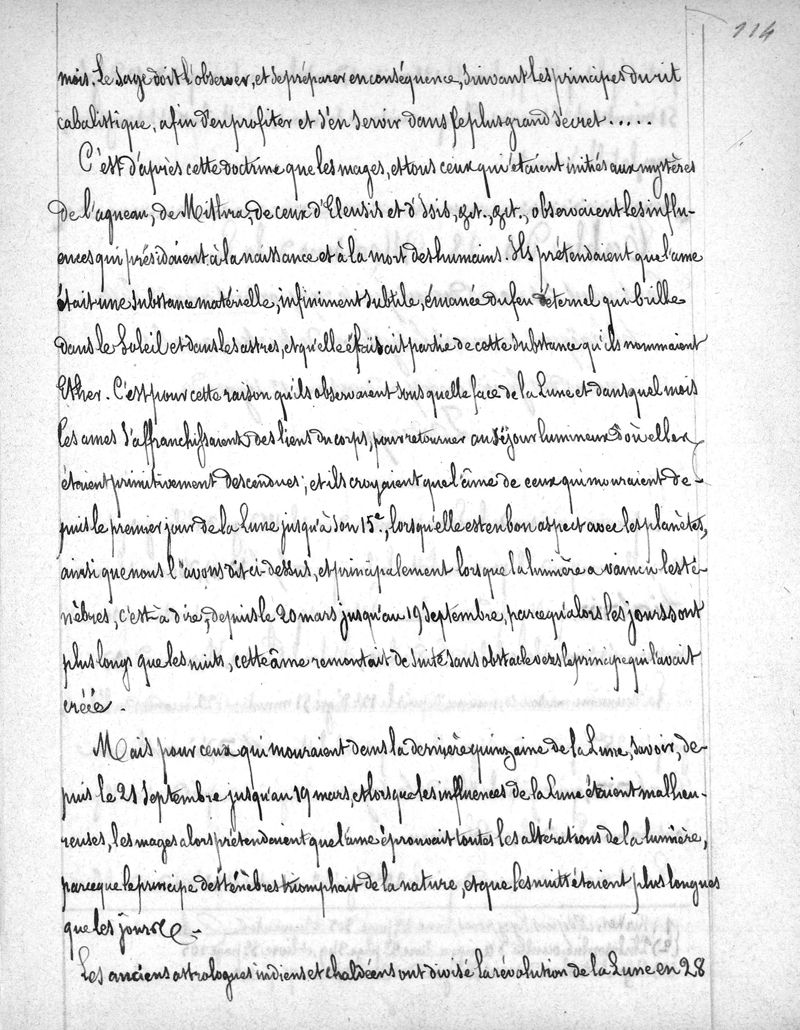 114
mois. Le sage doit l'observer, et se préparer en conséquence, suivant les principes du rit
cabalistique, afin d'en profiter et s'en servir dans le plus grand sécret.....
C'est d'après cette doctrine que les mages, et tous ceux qui étaient initiés aux mystères
de l'agneau, de Mithra, de ceux d'Eleusis et d'Isis, &t., &t., observaient les influ-
ences qui présidaient à la naissance et à la mort des humains. Ils prétendaient que l'ame
était une substance matérielle, infiniment subtile, émanée du feu éternel qui brille
dans le Soleil et dans les astres, et qu'elle faisait partie de cette substance qu'ils nommaient
Ether. C'est pour cette raison qu'ils observaient sous quelle face de la Lune et dans quel mois
les ames s'affranchissaient des liens du corps, pour retourner au séjour lumineux d'où elles
étaient primitivement descendues; et ils croyaient que l'âme de ceux qui mouraient de-
puis le premier jour de la Lune jusqu'à son 15e., lorsqu'elle est en bon aspect avec les planètes,
ainsi que nous l'avons dit ci-dessus, et principalement lorsque la lumière a vaincu les té-
nèbres, c'est à dire, depuis le 20 mars jusqu'au 19 Septembre, parcequ'alors les jours sont
plus longs que les nuits, cette âme remontait de suite sans obstacle vers le principe qui l'avait
créée.
Mais pour ceux qui mouraient dans la dernière quinzaine de la Lune, savoir, de-
puis le 21 Septembre jusqu'au 19 mars, et lorsque les influences de la Lune étaient malheu-
reuses, les mages alors prétendaient que l'ame éprouvait toutes les altérations de la lumière,
parceque le principe des ténèbres triomphait de la nature, et que les nuits étaient plus longues
que les jours.
Les anciens astrologues indiens et chaldéens ont divisé la révolution de la Lune en 28